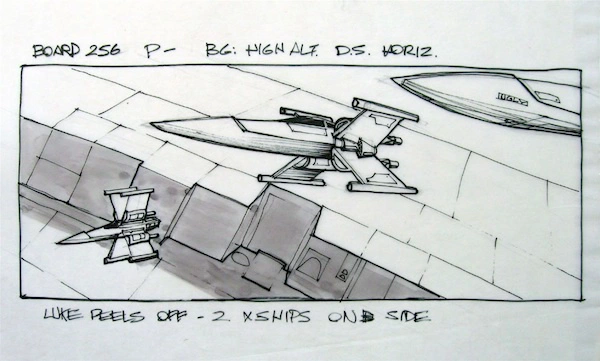 BOARD 256 P- BG: HIGH ALT. D.S. HORIZ.
LUKE PEELS OFF - 2 XSHIPS ON SIDE